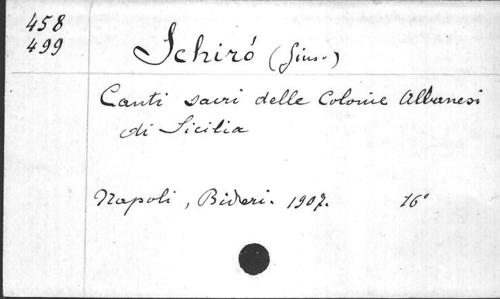 458
499
Schiró (Gius.)
Canti sacri delle Colonie Albanesi
di Sicilia
Napoli, Bideri. 1907. 16°